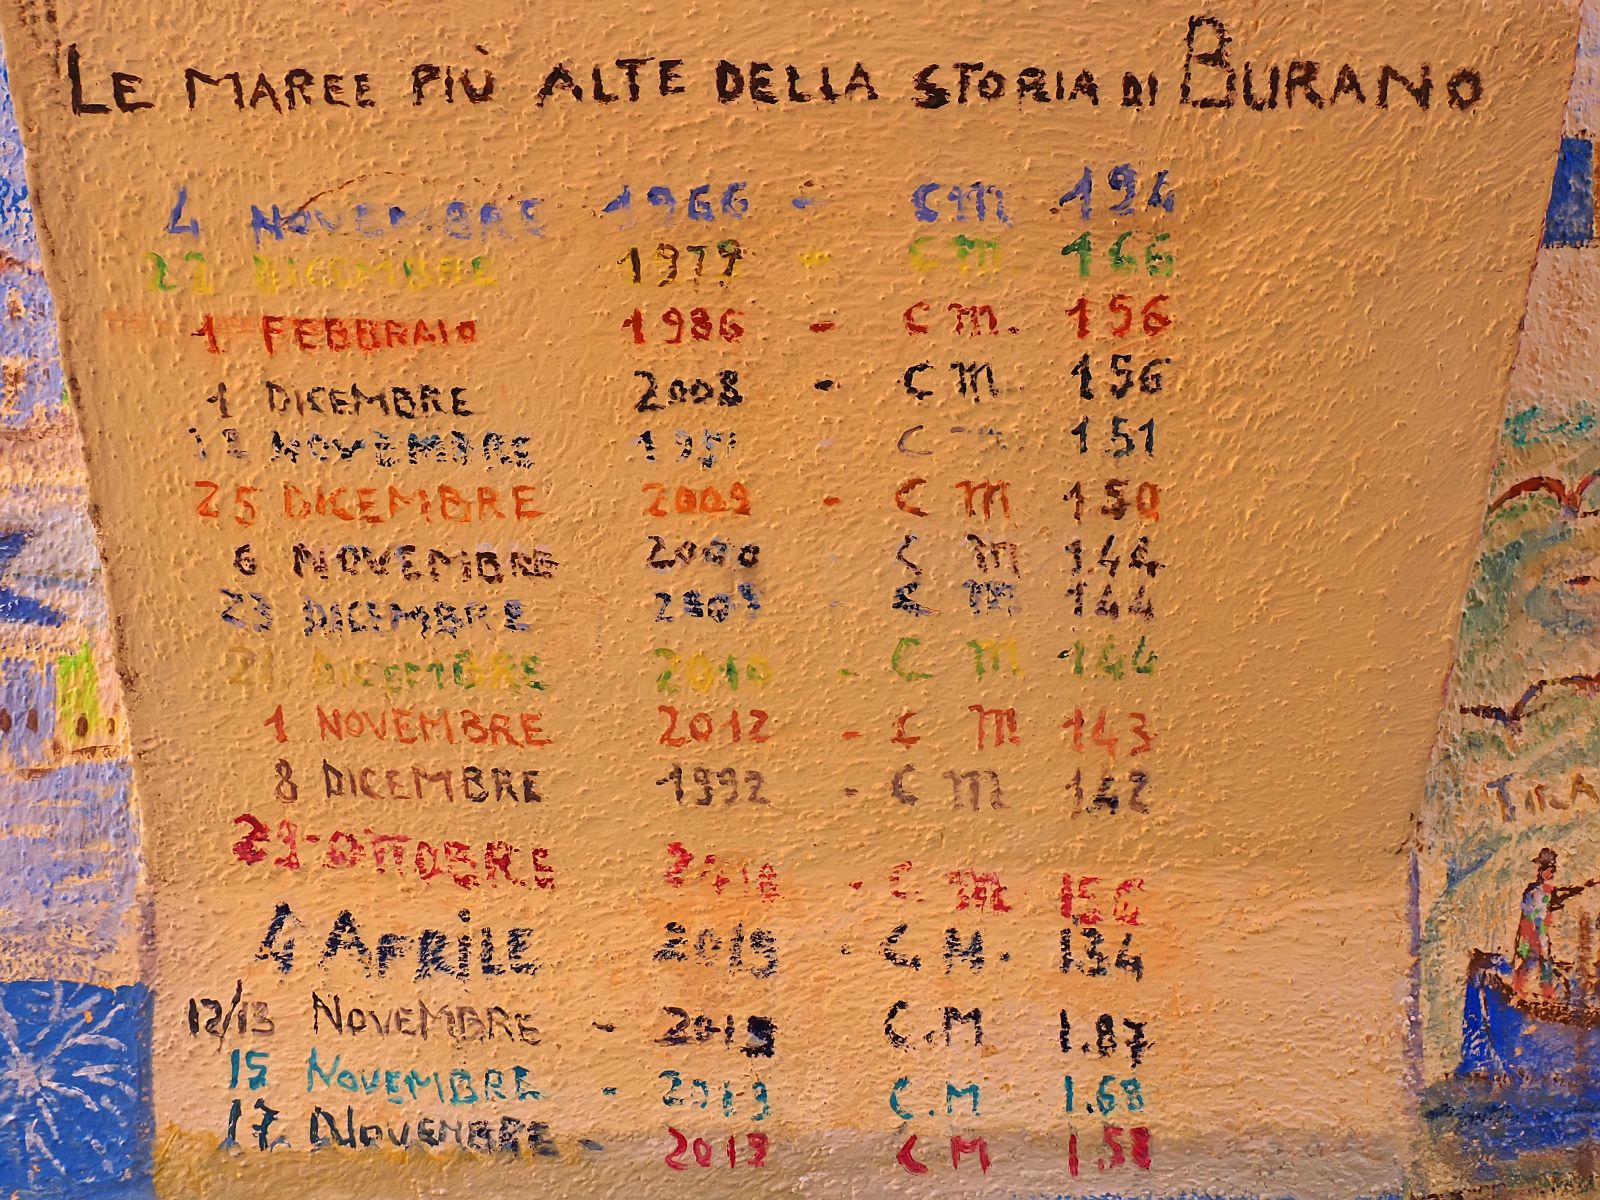 LE MAREE PIÙ ALTE DELLA STORIA DI BURANO
4 NOVEMBRE 1966 - cm 194
22 DICEMBRE 1979 - cm. 166
1 FEBBRAIO 1986 - cm. 156
1 DICEMBRE 2008 - cm 156
12 NOVEMBRE 1951 cm 151
25 DICEMBRE 2009 - cm 150
6 NOVEMBRE 2000 cm 144
23 DICEMBRE 2009 cm 144
DICEMBRE 2010 - cm 144
1 NOVEMBRE 2012 - cm 143
8 DICEMBRE 1992 - cm 142
29 OTTOBRE 2018 - cm. 156
4 APRILE 2019 - C.M. 134
12/13 NOVEMBRE - 2019 C.M 1.87
15 NOVEMBRE - 2019 C.M 1.68
17 NOVEMBRE - 2019 CM 1.58